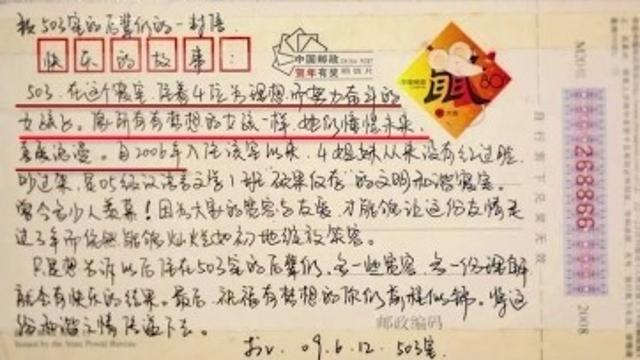 致503室的后辈们的一封信
快乐的故事:
中国邮政
CHINA POST
贺年有奖
明信片
中国邮政
80
鼠
503,在这个寝室,住着4位为理想而努力奋斗的
女孩儿。像所有有梦想的女孩一样,她们憧憬未来,
喜爱浪漫。自2006年入住该室以来,4姐妹从来没有红过脸,
吵过架,是05级汉语言文学1班“硕果仅存”的文明和谐寝室。
曾令多少人羡慕!因为大家的宽容与友爱,才能够让这份友情是
过3年而依然能够灿烂如初地绽放笑容。
只是想告诉以后住在503室的后辈们,多一些宽容,多一份理解
就会有快乐的结果。最后,祝福有梦想的你们前程似锦。将这
份和谐之情传递下去。
09.6.12. 503室.
邮政编码
Issued by the State Postal Bureau
268866
2008